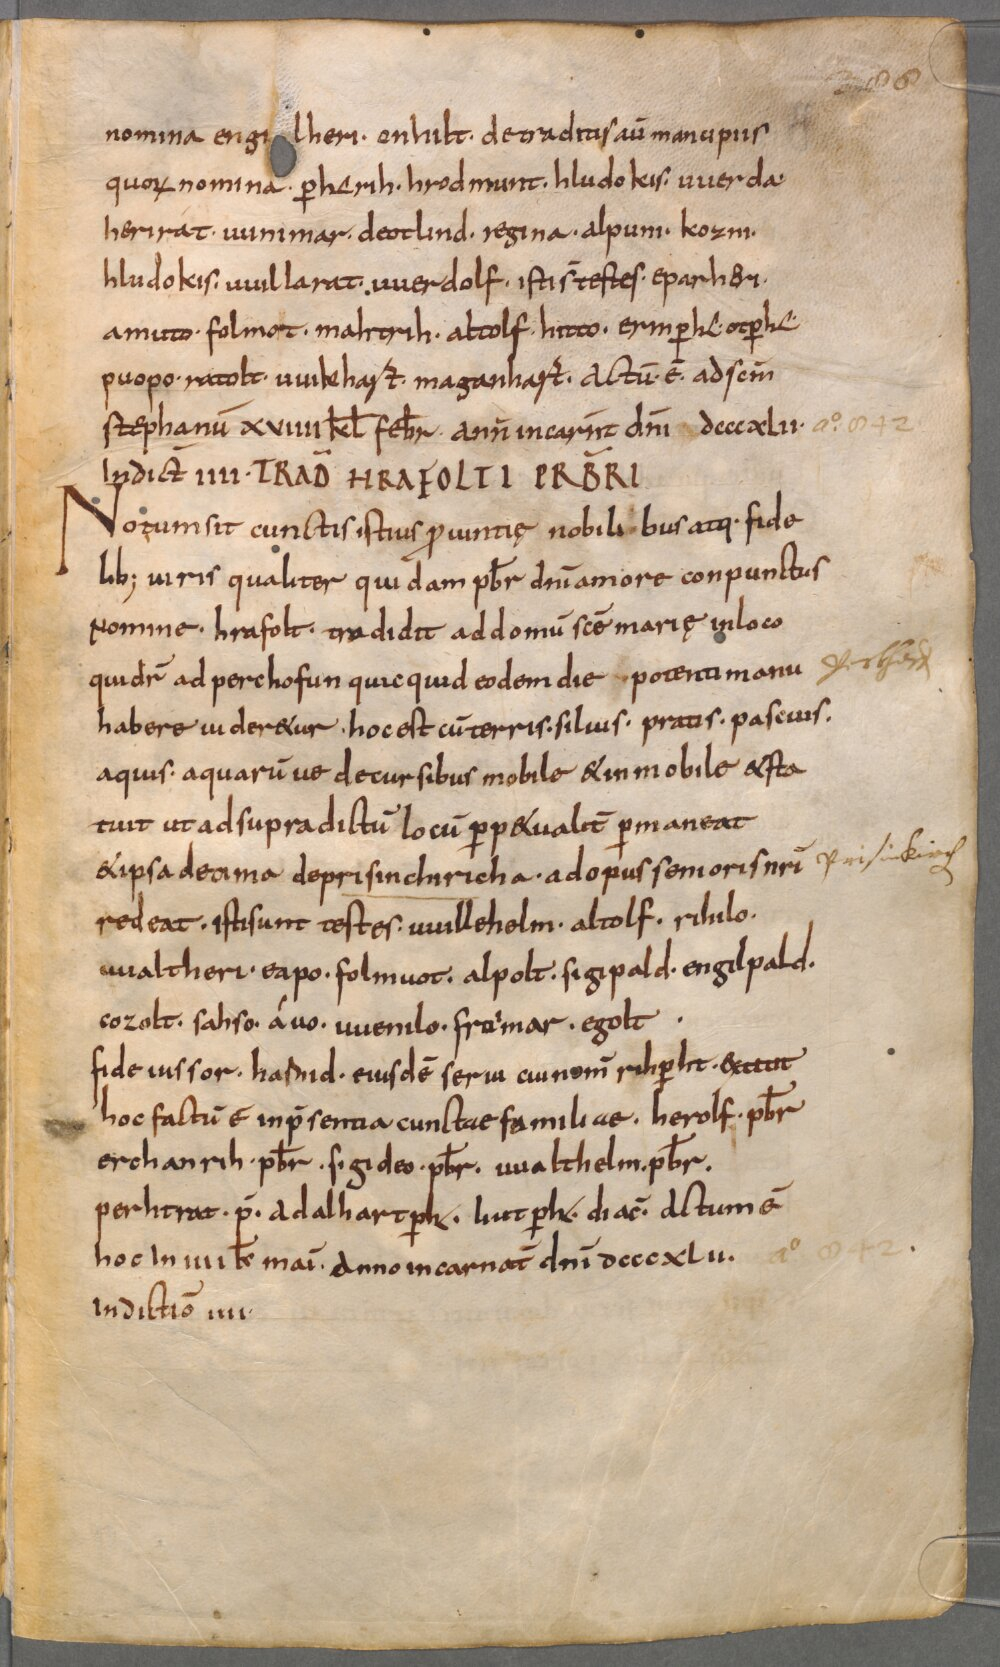 388
nomina engi lheri · enhilt · de traditis aū mancipiis
quoꝝ nomina · ꝑherih · hrodmunt · hludokis · uuerda·
herirat · uunimar · deotlind · regina · alpuni · kozni·
hludokis · uuillarat · uuerdolf · isti s̄ testes · eparheri·
amuto · folmot · mahtrih · altolf · hitto · ermꝑht · otꝑht·
puopo · ratolt · uuikhart · maganhart · Actū · ē · ad scm̄
stephanū xviiii kł febr̄ · ann̄ incarn̄t dn̄i dcccxlii · aº 842
Indict̄ iiii · TRAD̄ HRAFOLTI PRB̄RI
Notum sit cunctis istius ꝓuintię nobilibus atq· fide
lib; uiris qualiter quidam pb̄r dn̄i amore conpunctus
nomine · hrafolt · tradidit ad domū scē marię in loco
qui dr̄ ad perchofun quicquid eodem die potenti manu
habere uider&ur · hoc est cū terris · siluis · pratis · pascuis ·
aquis · aquarū ue decursibus mobile & inmobile & sta
tuit ut ad supradictū locū ꝑp&ualit̄ ꝑmaneat
& ipsa decima de prisinchiricha · ad opus senioris nr̄i prisinkirch
redeat · isti sunt testes · uuillehelm · altolf · rihilo ·
uualtheri · eapo · folmuot · alpolt · sigipald · engilpald ·
cozolt · sahso · áuo · uuenilo · frumar · egolt ·
fideiussor · hasmid · eiusdē serui cui nom̄ rihꝑht · extitit
hoc factū ē in p̄sentia cunctae familiae · herolf · pb̄r
erchanrih · pb̄r · sigideo · pb̄r · uualthelm · pb̄r ·
perhtrat · p̄ · Adalhart ꝑht · liutꝑht · diac̄ · Actum ē
hoc In iiii kł mai · Anno incarnat̄ dn̄i dcccxlii · aº 842 ·
Indictiō iiii ·